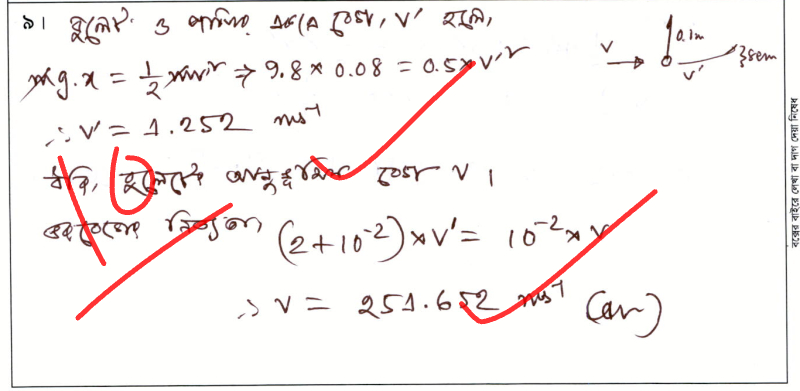 ৯। বুলেট ও পাখির একত্রে বেগ, v' হলে,
mg.x = 1/2 mv'² ⇒ 9.8 × 0.08 = 0.5 × v'²
∴ v' = 1.252 ms⁻¹
ধরি, বুলেটের বেগ v।
ভরবেগের নিত্যতা (2+10⁻²) × v' = 10⁻² × v
∴ v = 251.652 ms⁻¹ (Ans)
v
0.1m
v'
8cm
10
বক্সের বাইরে লেখা বা দাগ দেয়া নিষেধ